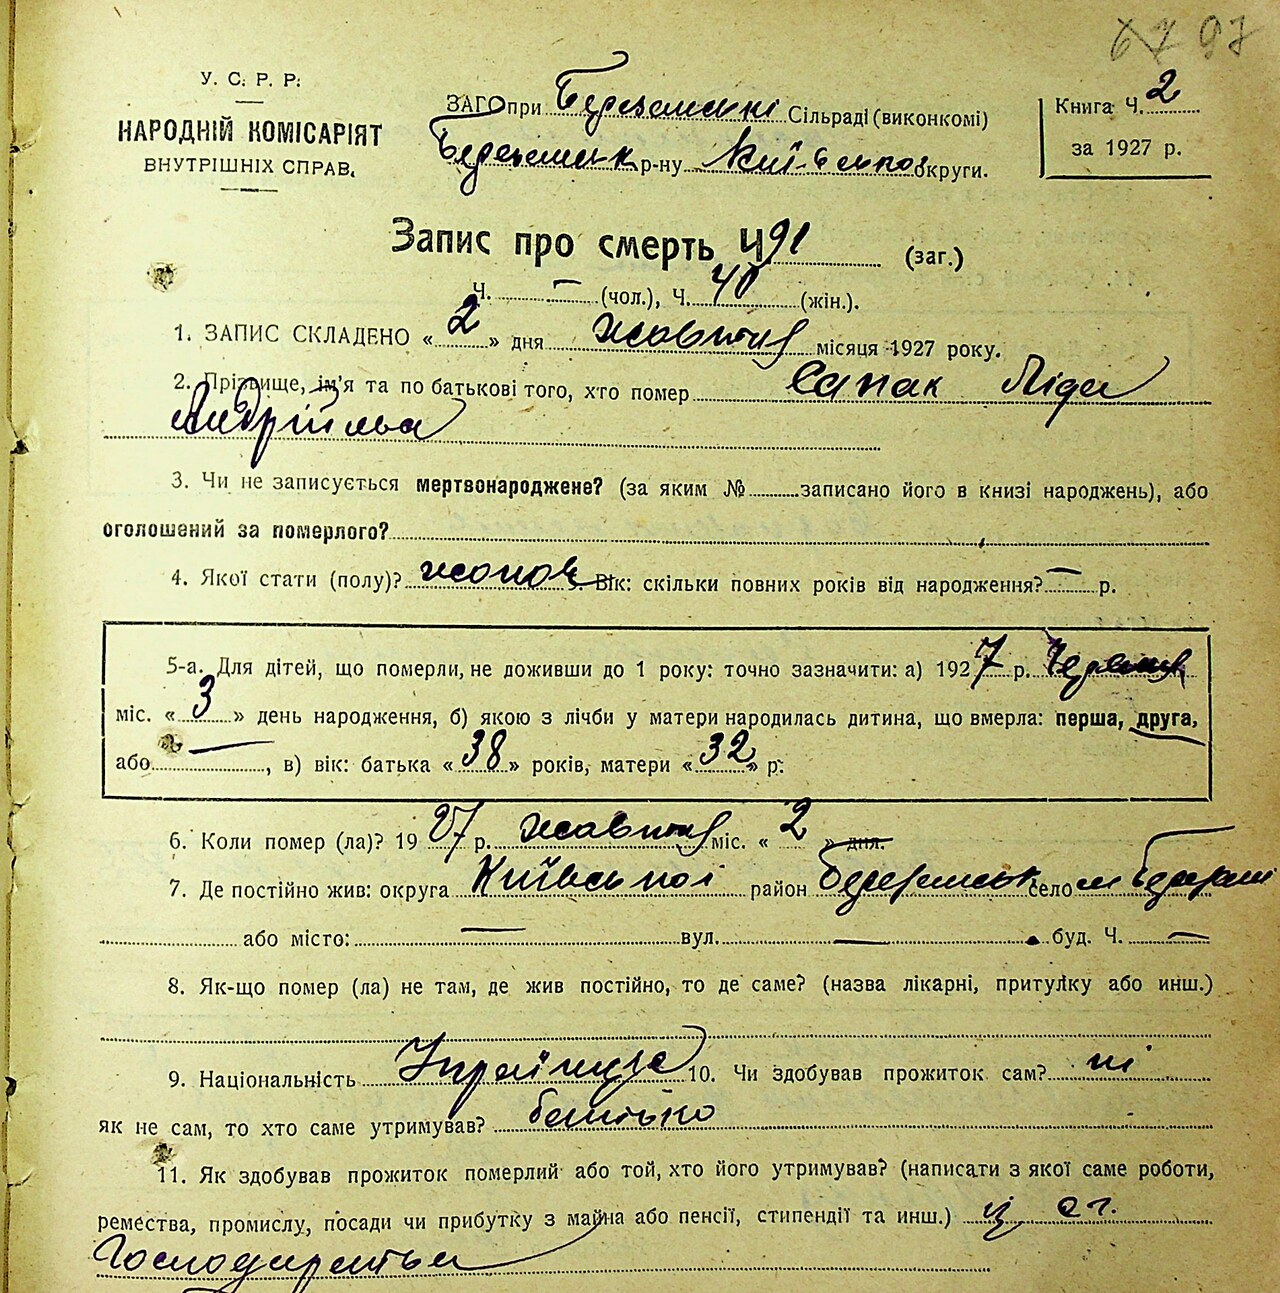 97
У. С. Р. Р.
НАРОДНІЙ КОМІСАРІЯТ
ВНУТРІШНІХ СПРАВ.
ЗАГС при Березанській Сільраді (виконкомі)
Березанськ р-ну Київської округи.
Книга Ч. 2
за 1927 р.
Запис про смерть Ч. 91 (заг.)
Ч. — (чол.), Ч. 40 (жін.).
1. ЗАПИС СКЛАДЕНО « 2 » дня жовтня місяця 1927 року.
2. Прізвище, ім'я та по батькові того, хто помер Сапак Ліда
Андріївна
3. Чи не записується мертвонароджене? (за яким № записано його в книзі народжень), або
оголошений за померлого?
4. Якої стати (полу)? жіноч 5. Вік: скільки повних років від народження? — р.
5-а. Для дітей, що померли, не доживши до 1 року: точно зазначити: а) 1927 р. Червня
міс. « 3 » день народження, б) якою з лічби у матери народилась дитина, що вмерла: перша, друга,
або —, в) вік: батька « 38 » років, матери « 32 » р.
6. Коли помер (ла)? 1927 р. жовтня міс. « 2 » дня.
7. Де постійно жив: округа Київської район Березанськ село м Березані
або місто: — вул. — буд. Ч. —
8. Як-що помер (ла) не там, де жив постійно, то де саме? (назва лікарні, притулку або инш.)
9. Національність Українка 10. Чи здобував прожиток сам? ні
як не сам, то хто саме утримував? батько
11. Як здобував прожиток померлий або той, хто його утримував? (написати з якої саме роботи,
ремества, промислу, посади чи прибутку з майна або пенсії, стипендії та инш.) із с.г.
Господарства